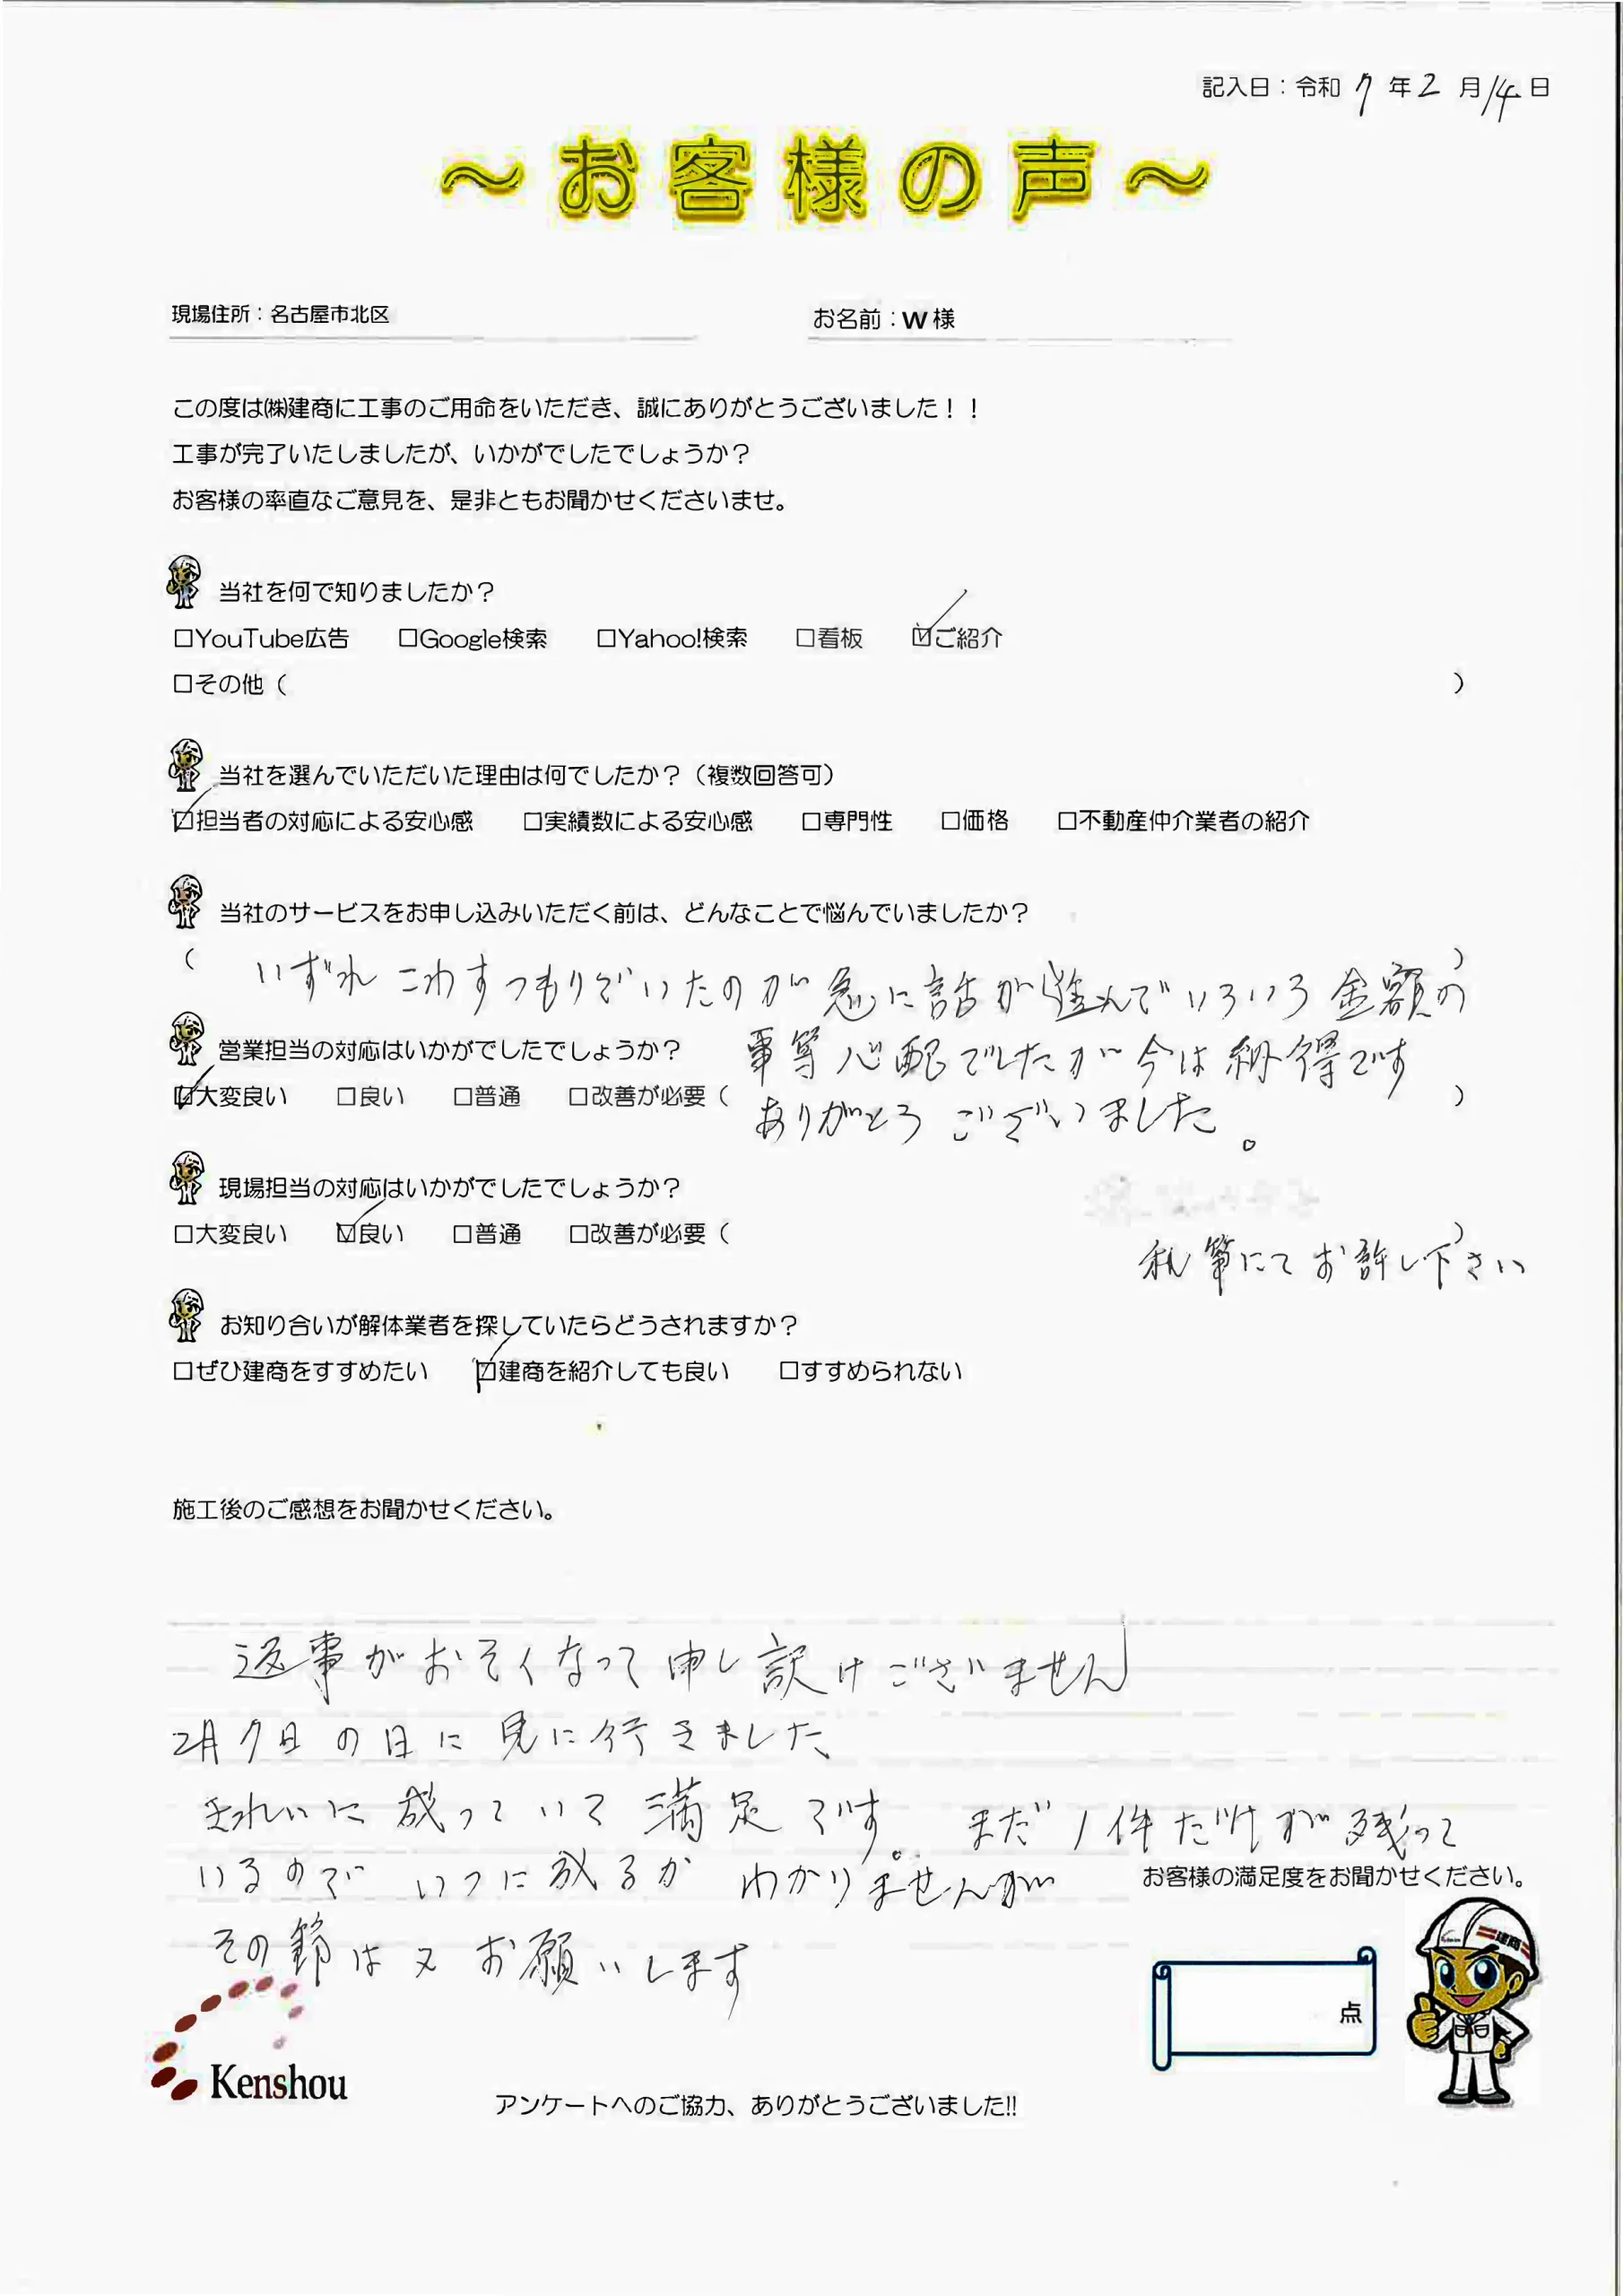 記入日：令和 7 年 2 月 14 日
～お客様の声～
現場住所：名古屋市北区
お名前：W 様
この度は㈱建商に工事のご用命をいただき、誠にありがとうございました！！
工事が完了いたしましたが、いかがでしたでしょうか？
お客様の率直なご意見を、是非ともお聞かせくださいませ。
当社を何で知りましたか？
□YouTube広告 □Google検索 □Yahoo!検索 □看板 ☑ご紹介
□その他（ ）
当社を選んでいただいた理由は何でしたか？（複数回答可）
☑担当者の対応による安心感 □実績数による安心感 □専門性 □価格 □不動産仲介業者の紹介
当社のサービスをお申し込みいただく前は、どんなことで悩んでいましたか？
（ いずれこわすつもりでいたのが急に話が進んでいろいろ金額の ）
事等心配でしたが今は納得です
ありがとうございました。
営業担当の対応はいかがでしたでしょうか？
☑大変良い □良い □普通 □改善が必要（ ）
現場担当の対応はいかがでしたでしょうか？
□大変良い ☑良い □普通 □改善が必要（ ）
乱筆にてお許し下さい
お知り合いが解体業者を探していたらどうされますか？
□ぜひ建商をすすめたい ☑建商を紹介しても良い □すすめられない
施工後のご感想をお聞かせください。
返事がおそくなって申し訳けございません
2月7日の日に見に行きました
きれいに成っていて満足です。まだ1件だけが残って
いるので いつに成るか わかりませんが
その節は又お願いします
お客様の満足度をお聞かせください。
点
建商
Kenshou
アンケートへのご協力、ありがとうございました!!